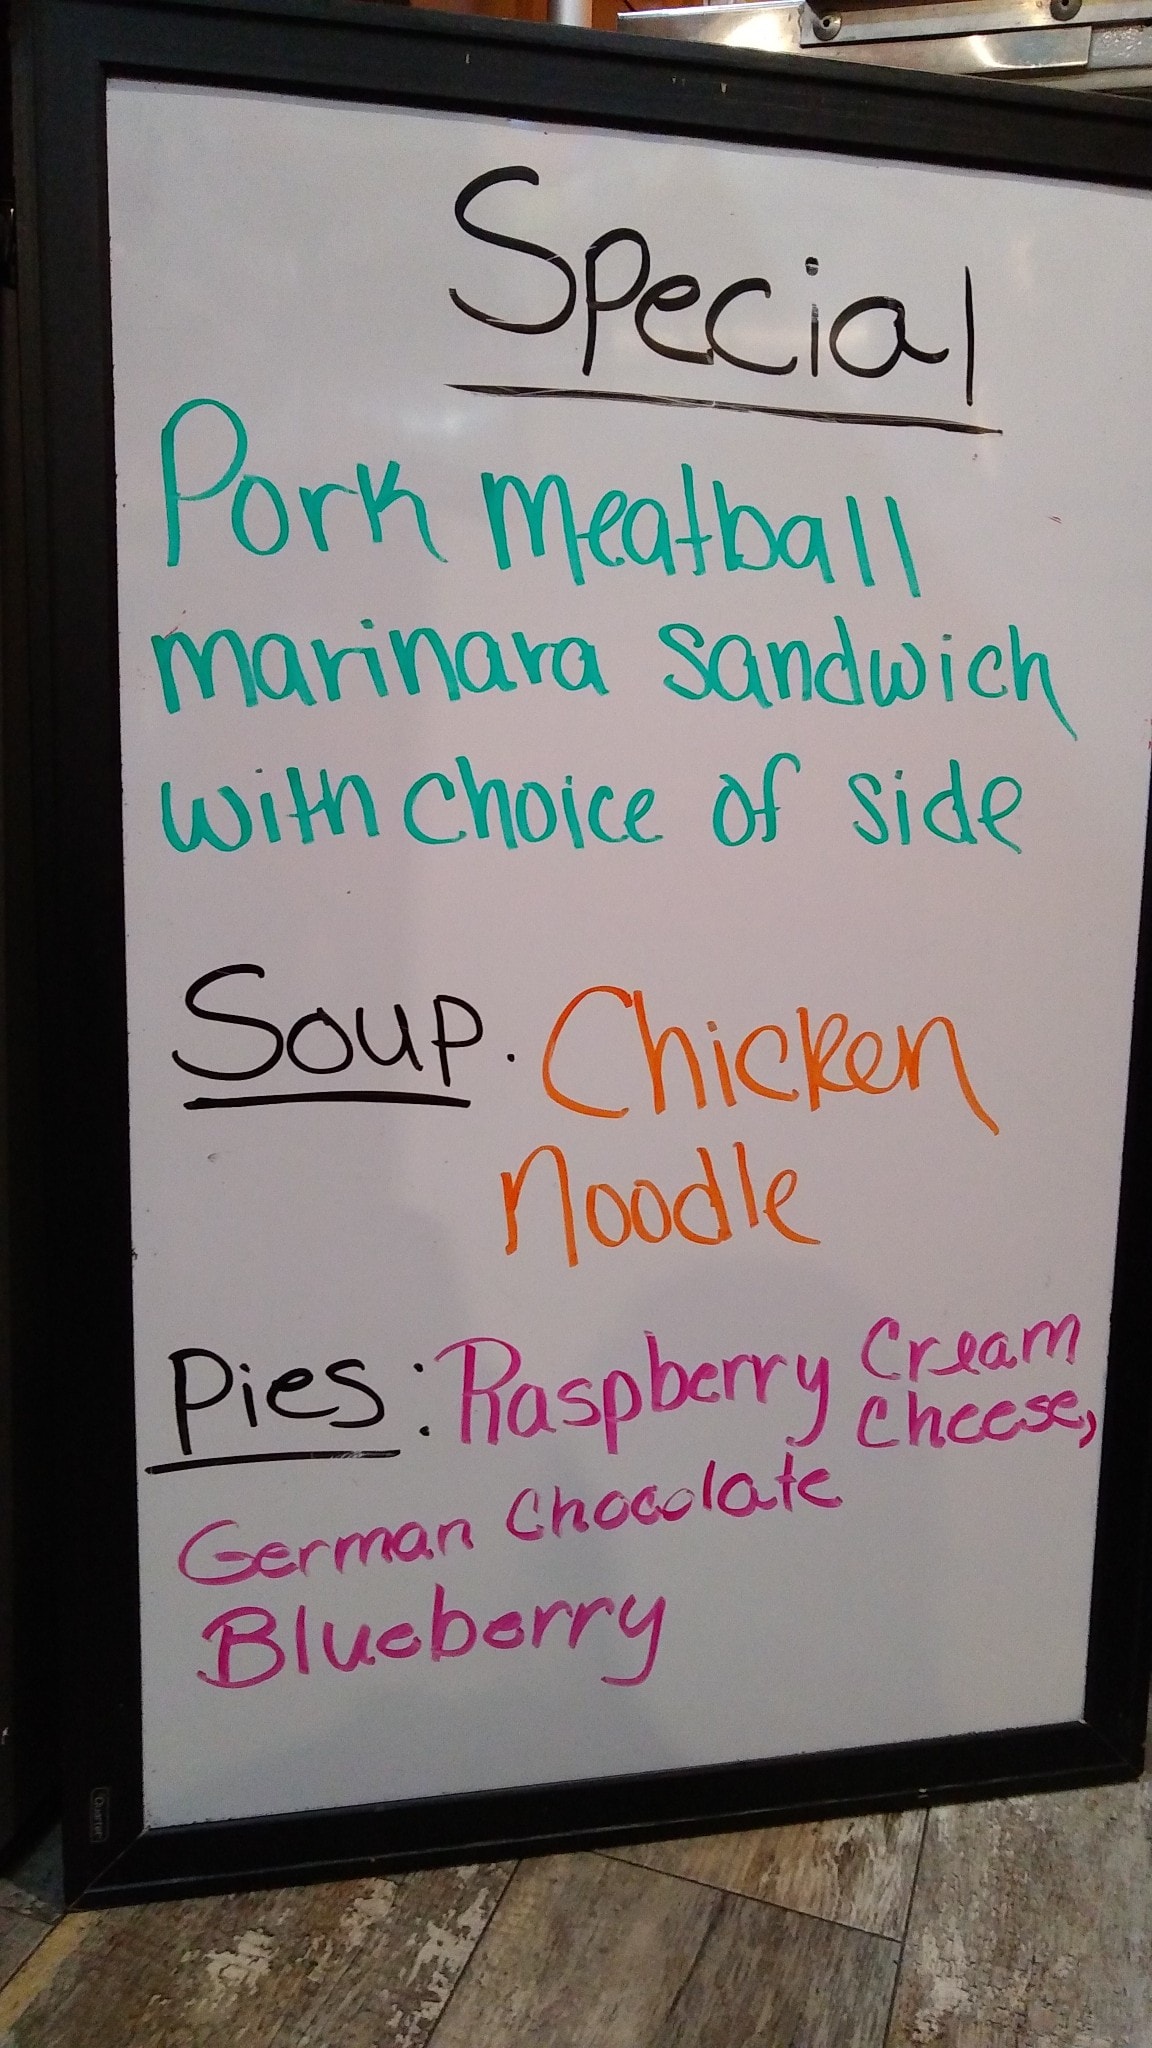 Special
Pork Meatball
marinara sandwich
with choice of side
Soup. Chicken
Noodle
Pies: Raspberry Cream
Cheese,
German Chocolate
Blueberry
Quartet